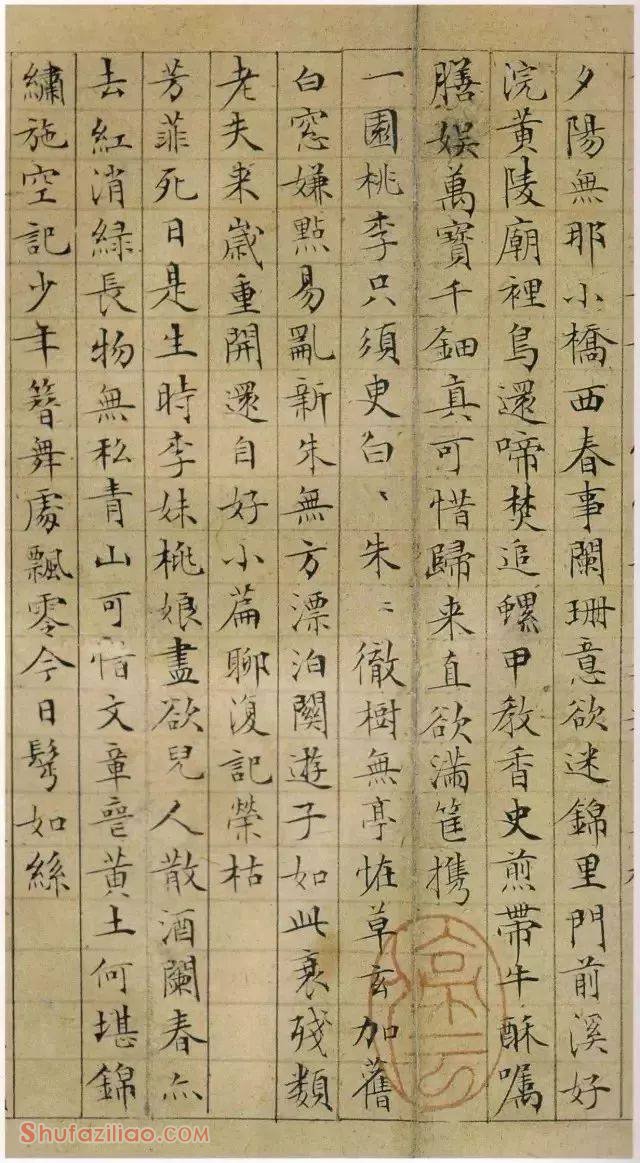 夕陽無那小橋西春事闌珊意欲迷錦里門前溪好
浣黃陵廟裡鳥還啼焚追螺甲教香史煎帶牛酥囑
膳娛萬寶千鈿真可惜歸来直欲滿筐攜
一園桃李只須臾白、朱、徹樹無亭怪草玄加舊
白窓嫌點易亂新朱無方漂泊關遊子如此衰殘類
老夫来歲重開還自好小篇聊復記榮枯
芳菲死日是生時李妹桃娘盡欲兒人散酒闌春亦
去紅消綠長物無私青山可惜文章喪黃土何堪錦
繡施空記少年簪舞處飄零今日髩如絲
Shufaziliao.COM